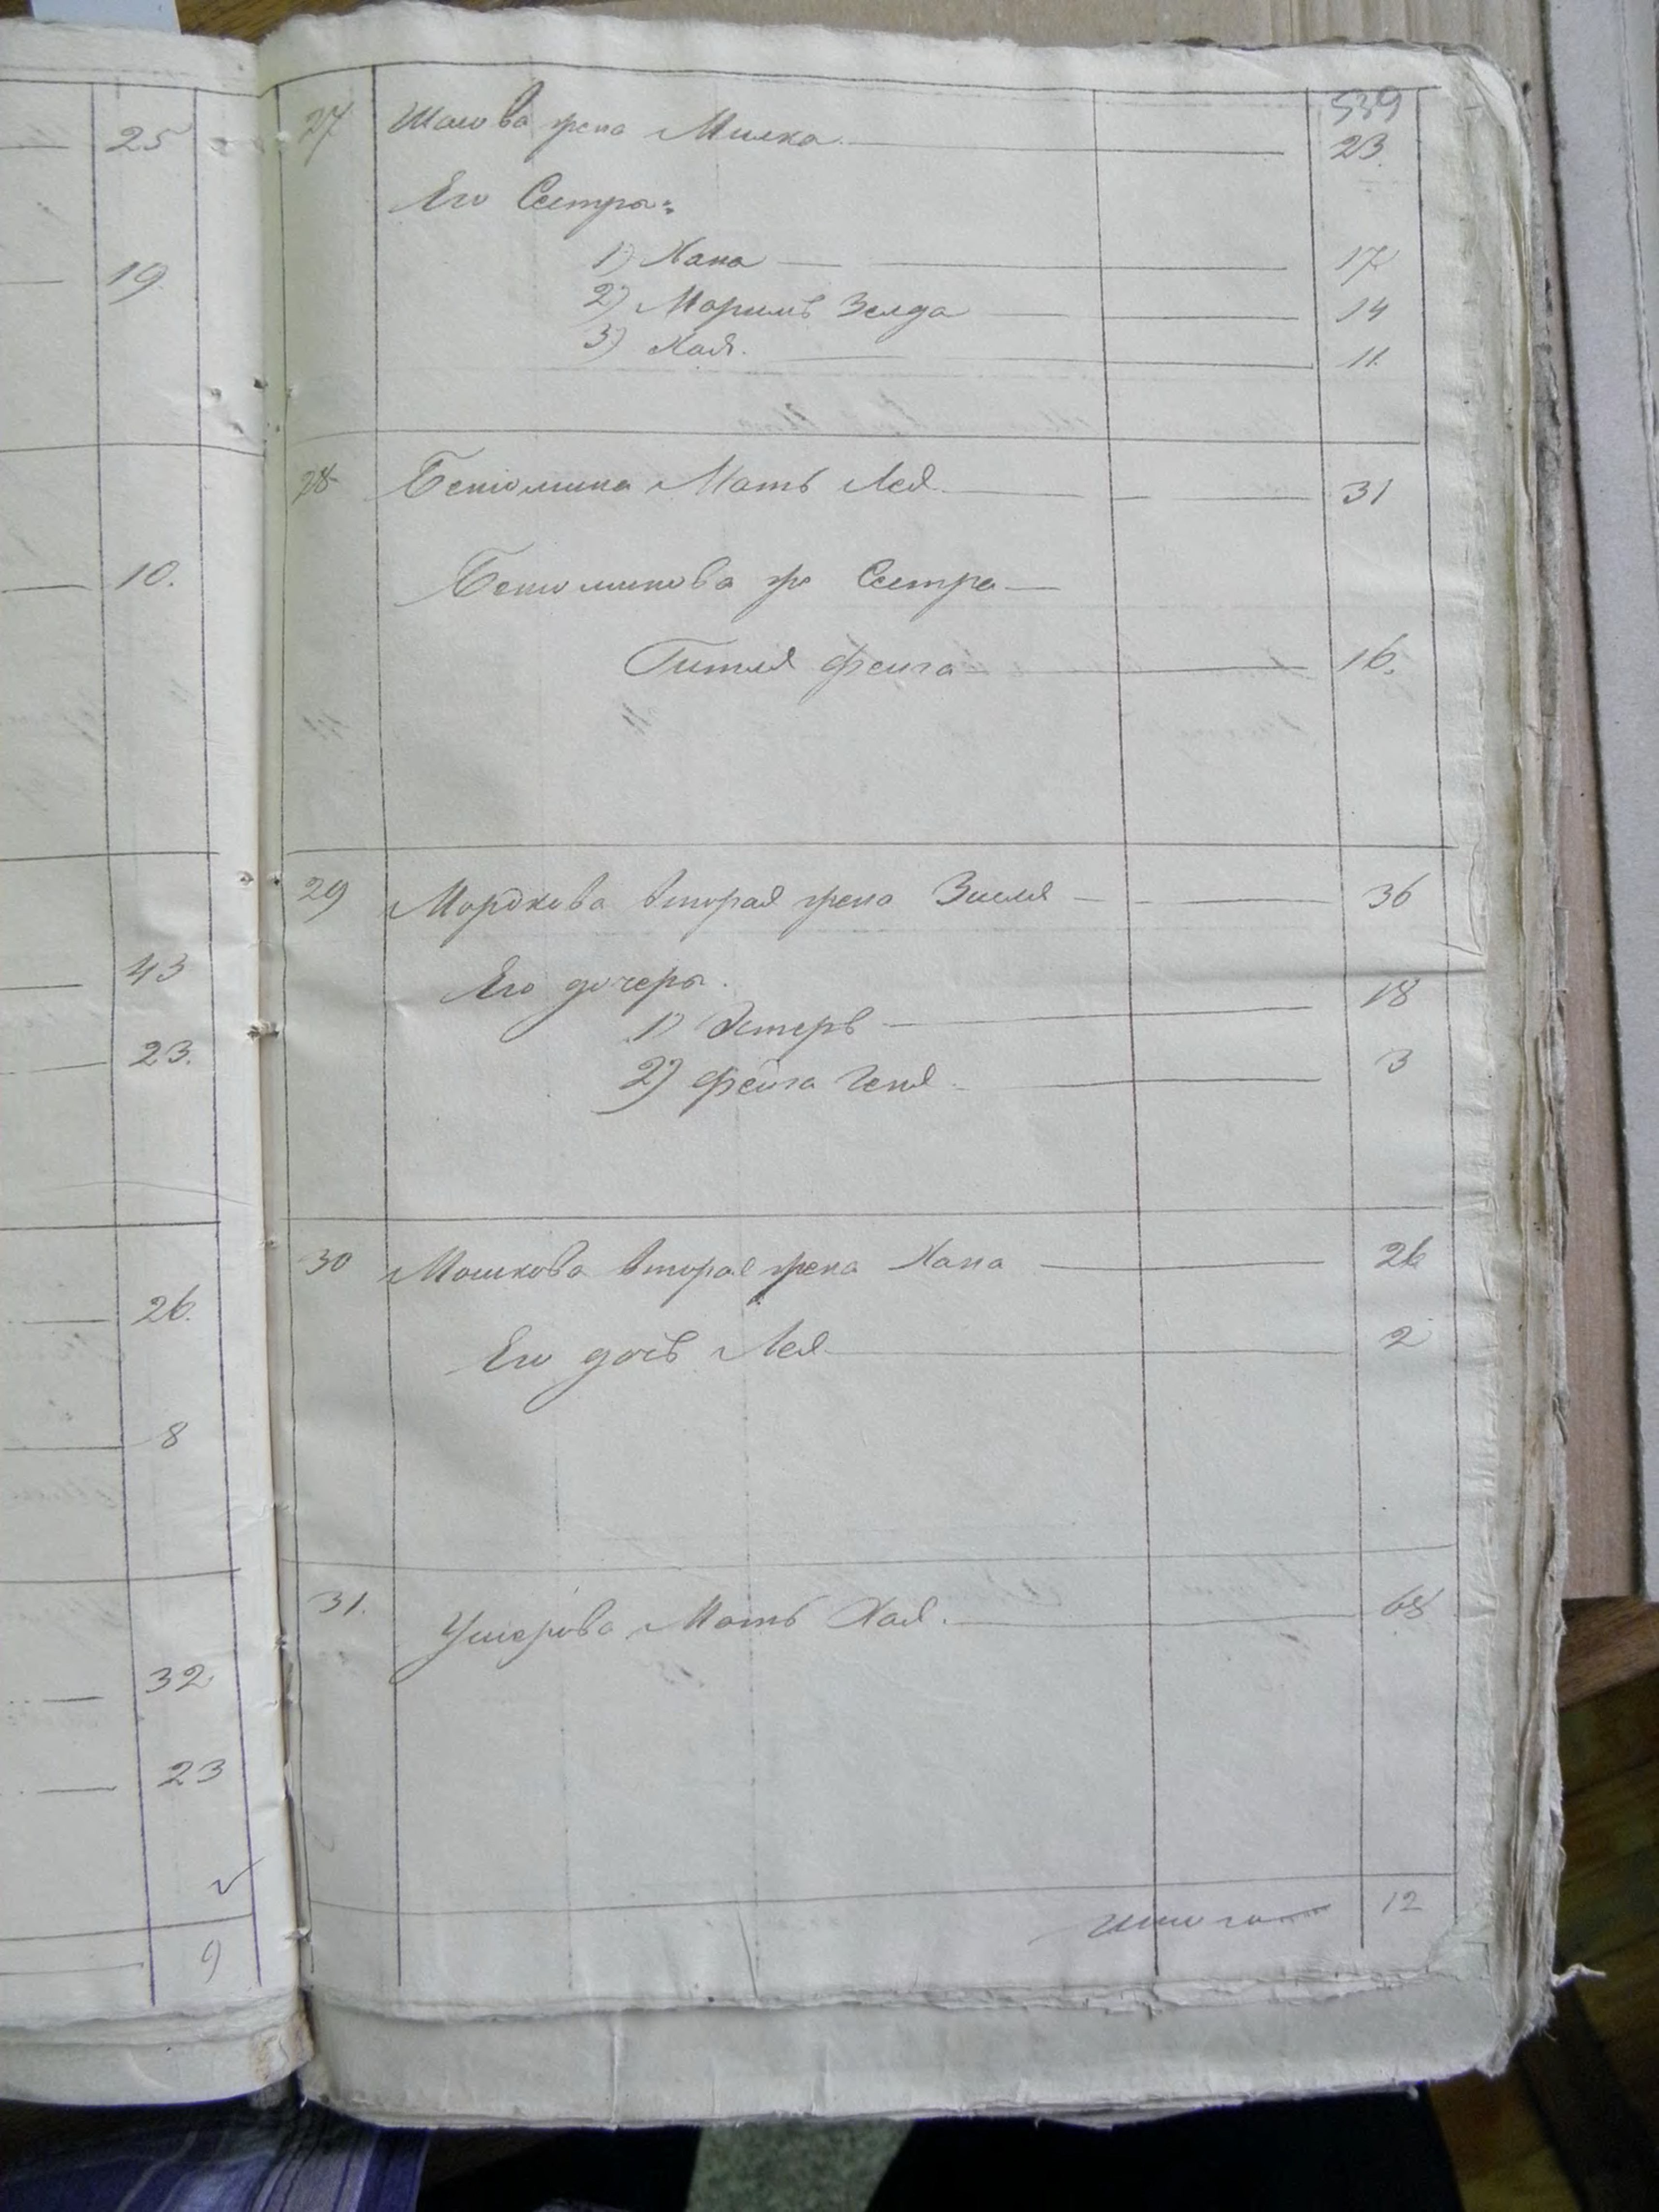 25
19
10.
43
23.
26.
8
32
23
9
539
27 Шаева жена Милка 23.
Его Сестры:
1) Хана 17
2) Мариль Зелда 14
3) Хая. 11.
28 Беньомина Мать Лея 31
Беньоминова же Сестра
Гитля Фейга 16.
29 Мордкова вторая жена Зисля 36
Его дочеры.
1) Эстерь 18
2) Фейга Геня 3
30 Мошкова вторая жена Хана 26
Его дочь Лея 2
31. Ушерова Мать Хая. 68
Итого 12